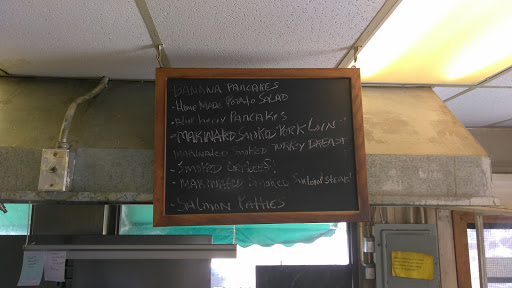 BANANA PANCAKES
- HOME MADE POTATO SALAD
- Blue berry PANCAKES
- MARINARD SMOKED PORK LOIN
MARINATED SMOKED TURKEY BREAST
- SMOKED
- MARINATED SMOKED steak
- SALMON PATTIES